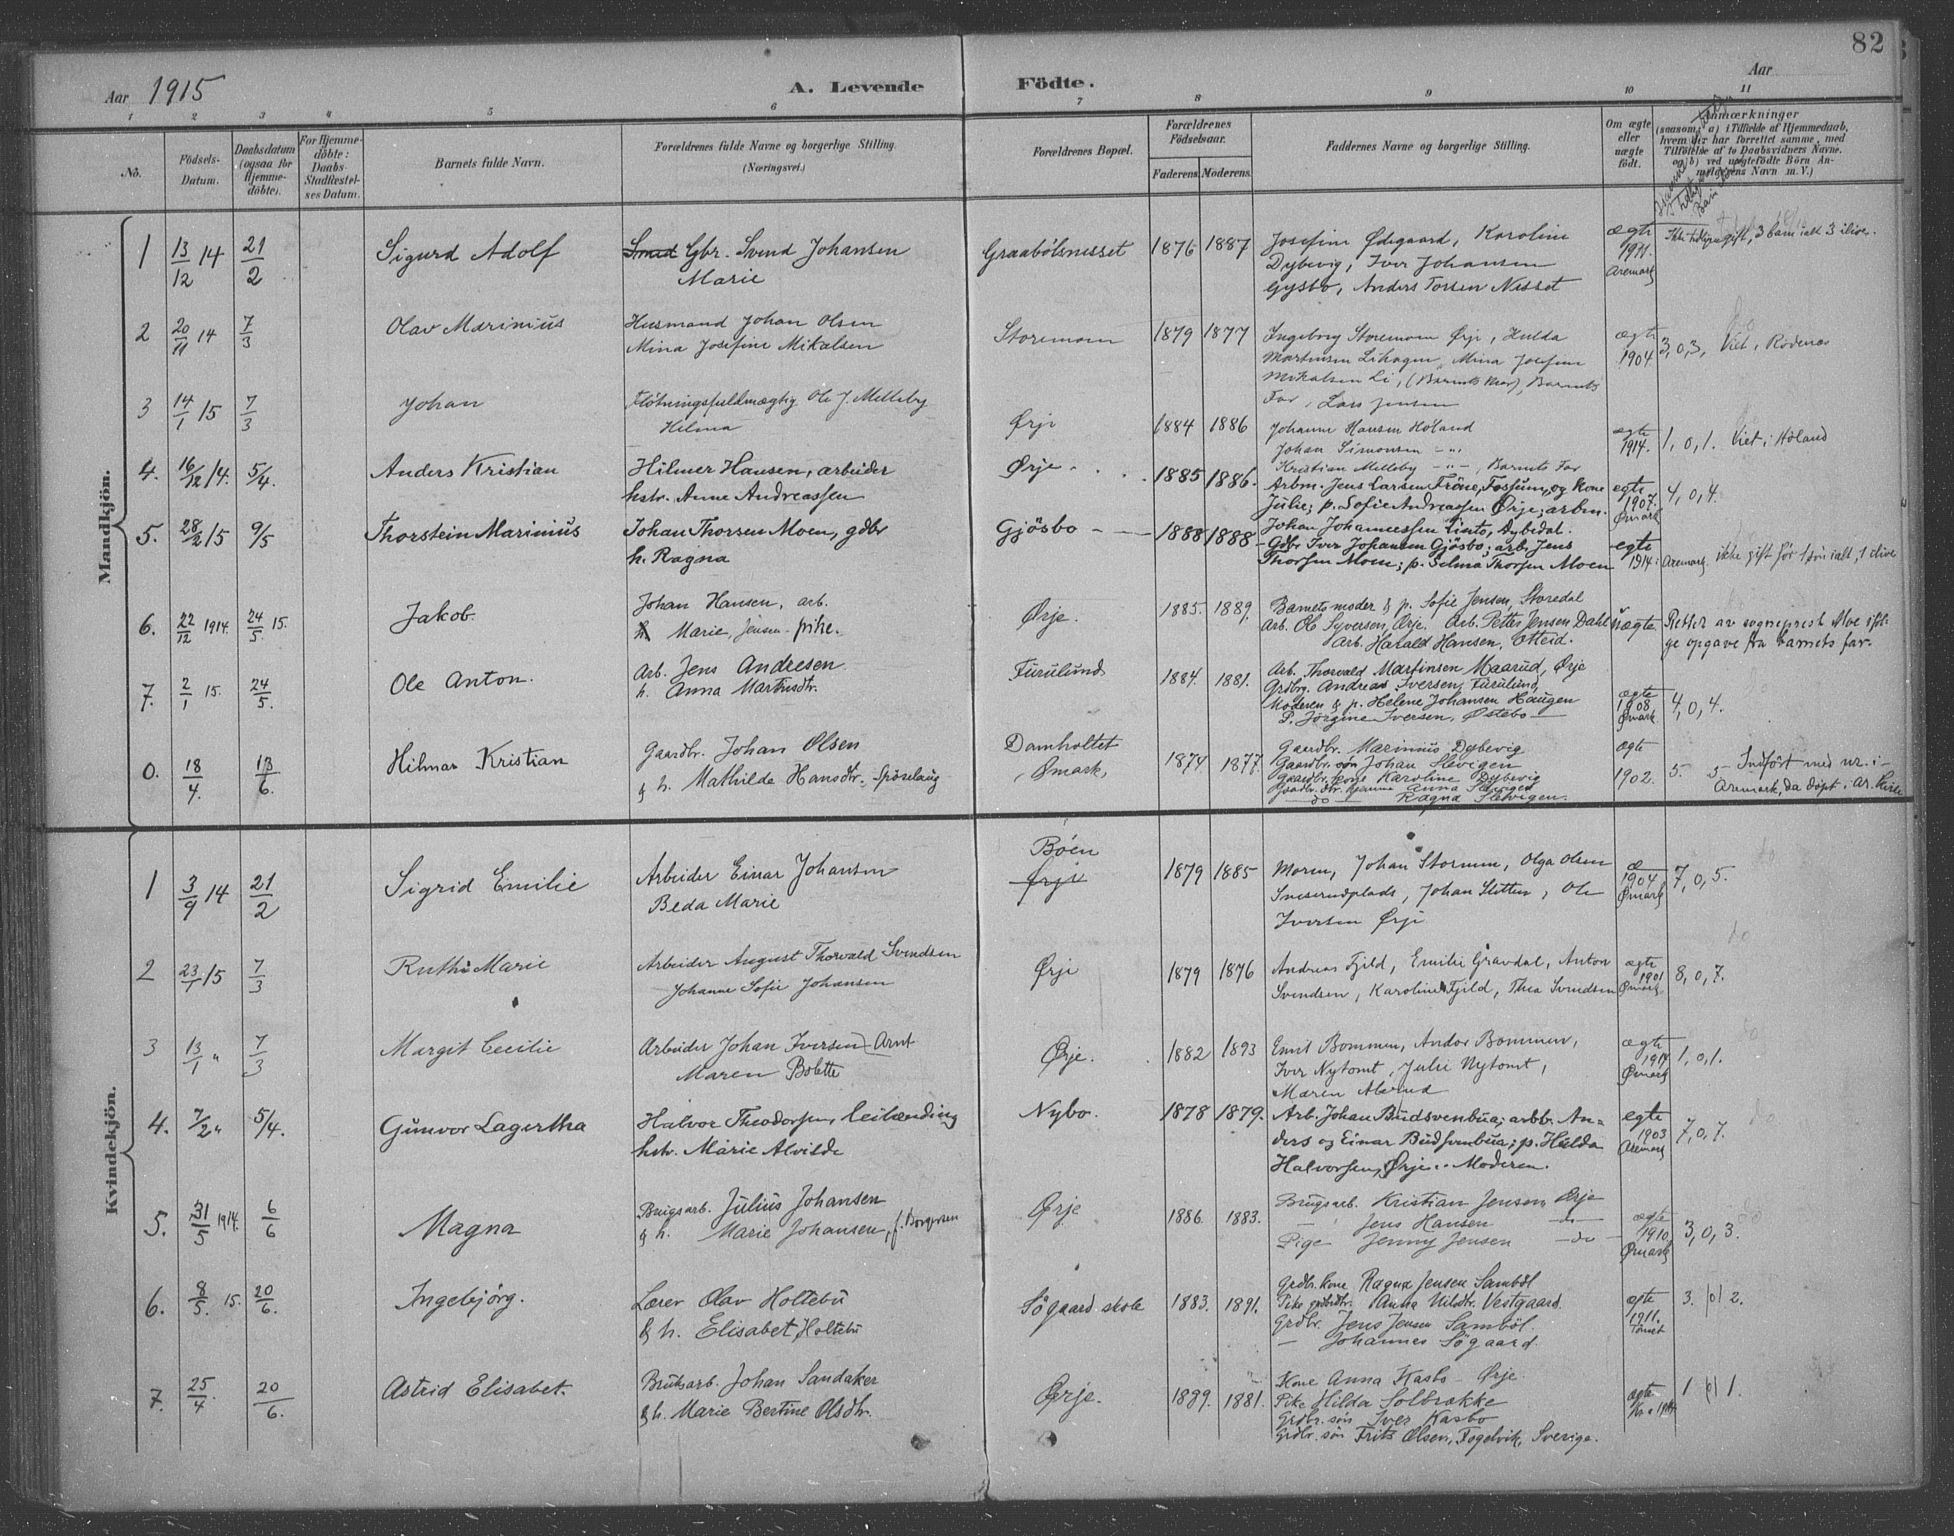 82
Aar 1915
A. Levende
Födte.
Aar
1 2 3 4 5 6 7 8 9 10 11
No.
Födsels-Datum.
Daabsdatum (ogsaa for Hjemme-döbte).
For Hjemme-döbte: Daabs-Stadfæstel-ses Datum.
Barnets fulde Navn.
Forældrenes fulde Navne og borgerlige Stilling.
(Næringsvei.)
Forældrenes Bopæl.
Forældrenes Födselsaar.
Faderens. Moderens.
Faddernes Navne og borgerlige Stilling.
Om ægte eller uægte födt.
Anmærkninger
(saasom: a) i Tilfælde af Hjemmedaab,
hvem der har forrettet samme, med
Tilföielse af to Daabsvidners Navne.
og b) ved uægtefödte Börn An-
melderens Navn m. V.)
Mandkjön.
1 13/12 14 21/2 Sigurd Adolf
Smed Gbr. Svend Johansen
Marie
Graabölsnesset 1876 1887
Josefine Ødegaard, Karoline
Dybevig, Iver Johansen
Gysbo, Anders Torsen Nesset
ægte 1911. Aremark
Ikke tidligere gift, 3 barn ialt 3 ilive.
2 20/11 14 7/3 Olav Marinius
Husmand Johan Olsen
Mina Josefine Mikalsen
Storemom 1879 1877
Ingeborg Storemom Ørje, Hulda
Martinsen Lihagen, Mina Josefine
Mikalsen Li, (Barnets Mor), Barnets
Far, Lars Jensen
ægte 1904. 3, 0, 3, Viet i Rödenes
3 14/1 15 7/3 Johan
Flötningsfuldmægtig Ole J. Melleby
Hilma
Ørje 1884 1886
Johanne Hansen Höland
Johan Simonsen -"-
Kristian Melleby -"-, Barnets Far
ægte 1914. 1, 0, 1. Viet i Höland
4. 16/12 14. 5/4. Anders Kristian
Hilmer Hansen, arbeider
hstr. Anne Andreassen
Ørje. 1885 1886.
Arbm. Jens Larsen Fröne, Fossum, og Kone
Julie; p. Sofie Andreassen Ørje; arbm.
Johan Johannessen Linto, Dybedal.
egte 1907. Ømark 4, 0, 4.
5. 28/2 15 9/5 Thorstein Marinius
Johan Thorsen Moen, gdbr
h. Ragna
Gjösbo 1888 1888
Gdbr Iver Johansen Gjösbo; arb. Jens
Thorsen Moen; p. Selma Thorsen Moen
egte 1914. Aremark. ikke gift før 1 barn ialt, 1 ilive
6. 22/12 1914. 24/5. 15. Jakob.
Johan Hansen, arb.
h Marie Jensen pike.
Ørje. 1885. 1889.
Barnets moder & p. Sofie Jensen, Storedal
Arb. Ole Syversen, Ørje. Arb. Petter Jensen Dahl
Arb. Harald Hansen, Otteid.
uægte. Rettet av sogneprest Alve iføl-
ge opgave fra barnets far.
7. 2/1 15. 24/5. Ole Anton.
Arb. Jens Andresen
h. Anna Martinsdtr.
Furulund 1884. 1881.
Arb. Thorvald Martinsen Maarud, Ørje
Grdbrg. Andreas Iversen, Furulund,
Moderen & p. Helene Johansen Haugen
P. Jörgine Iversen, Østebö
ægte 1908. Ømark 4, 0, 4.
0. 18/4. 13/6. Hilmar Kristian
Gaardbr. Johan Olsen
& h. Mathilde Hansdtr. Spöselaug
Damholtet
Ømark, 1874 1877.
Gaardbr. Marinius Dybevig
Gaardbr. sön Johan Slevigen
Gaardbr. kone Karoline Dybevig
Gaardbr. dtr. hjemme Anna Slevigen
do Ragna Slevigen.
ægte 1902. 5. 5 Indfört med nr. i
Aremark, da döpt i Ar. Kirke
Kvindekjön.
1 3/9 14 21/2 Sigrid Emilie
Arbeider Einar Johansen
Beda Marie
Böen
Ørje 1879 1885
Moren, Johan Stormm, Olga Olsen
Sneserudplads, Johan Sletten, Ole
Iversen Ørje
æ 1904 Ømark 7, 0, 5.
2 23/1 15 7/3 Ruth Marie
Arbeider August Thorvald Svendsen
Johanne Sofie Johansen
Ørje 1879 1876
Andreas Fjeld, Emilie Gravdal, Anton
Svendsen, Karoline Fjeld, Thea Svendsen
ægte 1901 Ømark. 8, 0, 7.
3 13/1 " 7/3 Margit Cecilie
Arbeider Johan Iversen Arnt
Maren Bolette
Ørje. 1882 1893
Emil Bommen, Andor Bommen,
Iver Nytomt, Julie Nytomt,
Maren Alerud
ægte 1914 Ømark 1, 0, 1.
4. 7/2 " 5/4. Gunvor Lagertha
Halvor Theodorsen, leilænding
hstr. Marie Alvilde
Nybo. 1878 1879.
Arb. Johan Budsvenbua; arbbr. An-
ders og Einar Budsvenbua; p. Hulda
Halvorsen, Ørje. Moderen.
egte 1903 Aremark 7, 0, 7.
5. 31/5 1914. 6/6 Magna
Brugsarb. Julius Johansen
& h. Marie Johansen, f. Borgersen
Ørje 1886. 1883.
Brugsarb. Kristian Jensen, Ørje
— Jens Hansen —do—
Pige Jenny Jensen —do—
ægte 1910 Ømark 3, 0, 3.
6. 8/5. 15. 20/6. Ingebjörg.
Lærer Olav Holtebu
& h. Elisabet Holtebu
Sögaard skole 1883. 1891.
Grdbr. kone Ragna Jensen Samböl
Pike grdbrdtr. Anna Nilsdtr. Vestgaard.
Grdbr. Jens Jensen Samböl.
— Johannes Sögaard.
ægte 1911. 3. |0| 2.
7. 25/4. 20/6. Astrid Elisabet.
Bruksarb. Johan Sandaker
& h. Marie Bertine Olsdtr.
Ørje. 1889. 1881.
Kone Anna Kasbo Ørje
Pike Hilda Solbrække
Grdbr. sön Iver Kasbo
Grdbr. sön Frits Olsen, Fogelvik, Sverige.
ægte Kr.a 1914 1 |0| 1.